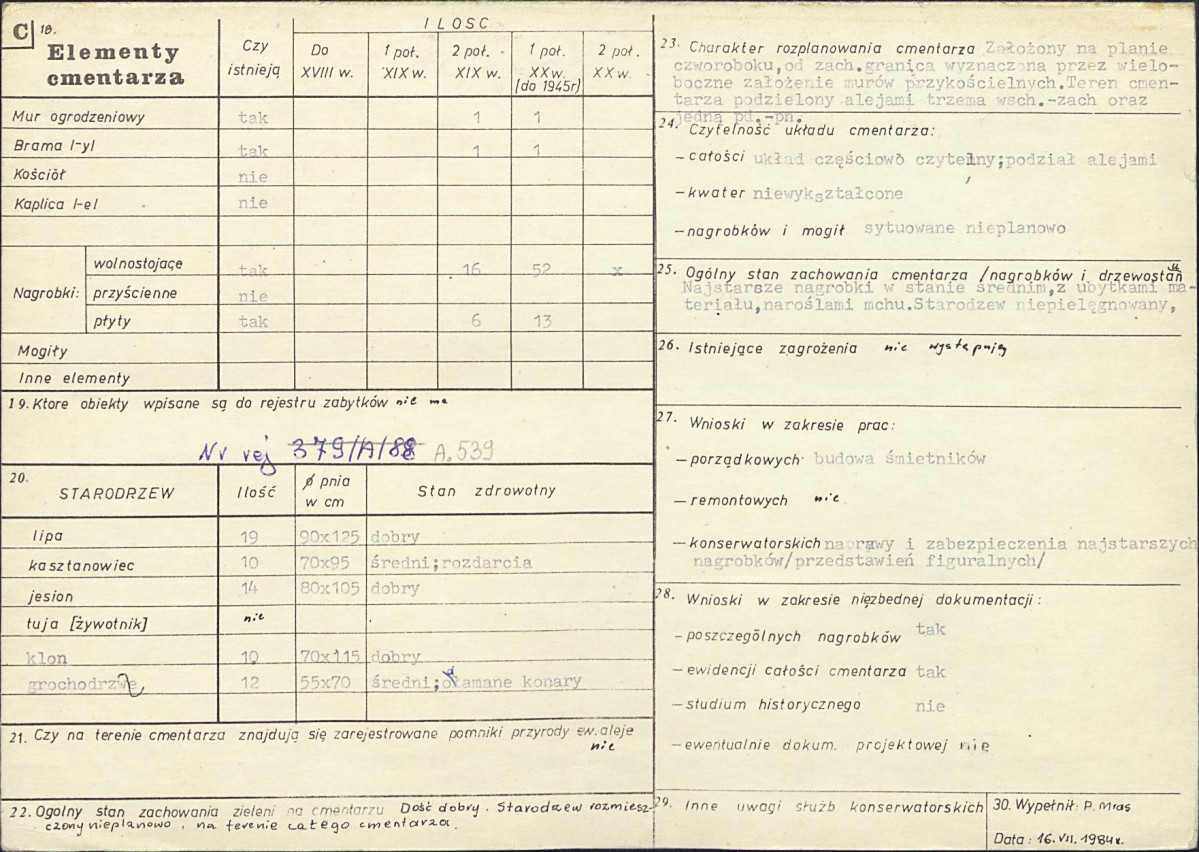 C 18.
Elementy cmentarza
Czy istnieją
ILOSC
Do XVIII w.
1 poł. XIX w.
2 poł. XIX w.
1 poł. XX w. (do 1945r)
2 poł. XX w.
Mur ogrodzeniowy tak 1 1
Brama l-yl tak 1 1
Kościół nie
Kaplica l-el nie
Nagrobki:
wolnostojące tak 16 52 x
przyścienne nie
płyty tak 6 13
Mogiły
Inne elementy
19. Ktore obiekty wpisane są do rejestru zabytków nie ma
Nr rej 379/A/88 A.539
20. STARODRZEW Ilość ∅ pnia w cm Stan zdrowotny
lipa 19 90x125 dobry
kasztanowiec 10 70x95 średni;rozdarcia
jesion 14 80x105 dobry
tuja [żywotnik] nie
klon 10 70x115 dobry
grochodrzwe 12 55x70 średni;ołamane konary
21. Czy na terenie cmentarza znajdują się zarejestrowane pomniki przyrody ew. aleje
nie
22. Ogolny stan zachowania zieleni na cmentarzu Dość dobry. Starodrzew rozmiesz-
czony nieplanowo, na terenie całego cmentarza.
23. Charakter rozplanowania cmentarza Założony na planie
czworoboku,od zach.granica wyznaczona przez wielo-
boczne założenie murów przykościelnych.Teren cmen-
tarza podzielony alejami trzema wsch.-zach oraz
jedną pd.-pn.
24. Czytelność układu cmentarza:
- całości układ częściowo czytelny;podział alejami
- kwater niewykształcone
- nagrobków i mogił sytuowane nieplanowo
25. Ogólny stan zachowania cmentarza /nagrobków i drzewostanu
Najstarsze nagrobki w stanie średnim,z ubytkami ma-
teriału,naroślami mchu.Starodzew niepielęgnowany,
26. Istniejące zagrożenia nie występują
27. Wnioski w zakresie prac:
- porządkowych budowa śmietników
- remontowych nie
- konserwatorskich naprawy i zabezpieczenia najstarszych
nagrobków/przedstawień figuralnych/
28. Wnioski w zakresie nięzbednej dokumentacji:
- poszczególnych nagrobków tak
- ewidencji całości cmentarza tak
- studium historycznego nie
- ewentualnie dokum. projektowej nie
29. Inne uwagi służb konserwatorskich
30. Wypełnił: P. Mras
Data: 16.VII.1984r.